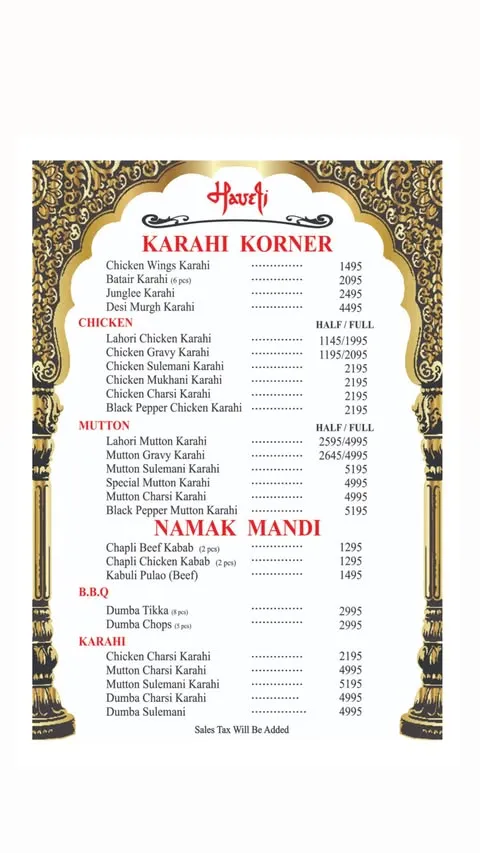 Haveli
KARAHI KORNER
Chicken Wings Karahi .............. 1495
Batair Karahi (6 pcs) .............. 2095
Junglee Karahi .............. 2495
Desi Murgh Karahi .............. 4495
CHICKEN HALF / FULL
Lahori Chicken Karahi .............. 1145/1995
Chicken Gravy Karahi .............. 1195/2095
Chicken Sulemani Karahi .............. 2195
Chicken Mukhani Karahi .............. 2195
Chicken Charsi Karahi .............. 2195
Black Pepper Chicken Karahi .............. 2195
MUTTON HALF / FULL
Lahori Mutton Karahi .............. 2595/4995
Mutton Gravy Karahi .............. 2645/4995
Mutton Sulemani Karahi .............. 5195
Special Mutton Karahi .............. 4995
Mutton Charsi Karahi .............. 4995
Black Pepper Mutton Karahi .............. 5195
NAMAK MANDI
Chapli Beef Kabab (2 pcs) .............. 1295
Chapli Chicken Kabab (2 pcs) .............. 1295
Kabuli Pulao (Beef) .............. 1495
B.B.Q
Dumba Tikka (8 pcs) .............. 2995
Dumba Chops (5 pcs) .............. 2995
KARAHI
Chicken Charsi Karahi .............. 2195
Mutton Charsi Karahi .............. 4995
Mutton Sulemani Karahi .............. 5195
Dumba Charsi Karahi ............. 4995
Dumba Sulemani ............... 4995
Sales Tax Will Be Added